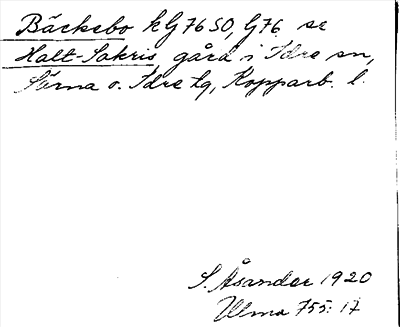 Bäckebo kG7650, G76 se
Halt-Sakris, gård i Idre sn,
Särna o. Idre tg, Kopparb. l.
S. Åsander 1920
Ulma 755:17